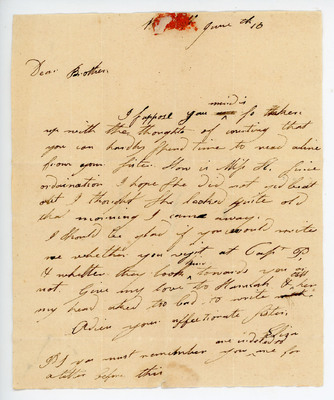 June th 16
Dear Brother,
I suppose your mind is so taken
up with the thoughts of writing that
you can hardly spend time to read a line
from your Sister. How is Miss H. since
ordination I hope she did not get beat
out I thought she looked quite old
the morning I came away.
I should be glad if you would write
me whether you at Capt P
& whether they look towards you or
not Give my love to Hannah & her
my head asked too bad to write
Adieu your affectionate Sister
Eliza
P S you must remember you are indebted to me for
a letter before this